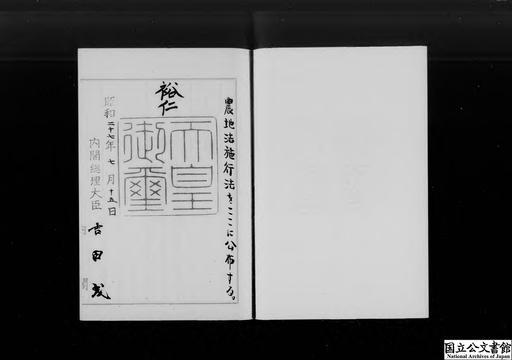 農地法施行法をここに公布する。
裕仁
天皇御璽
昭和二十七年七月十五日
内閣総理大臣 吉田茂
国立公文書館
National Archives of Japan